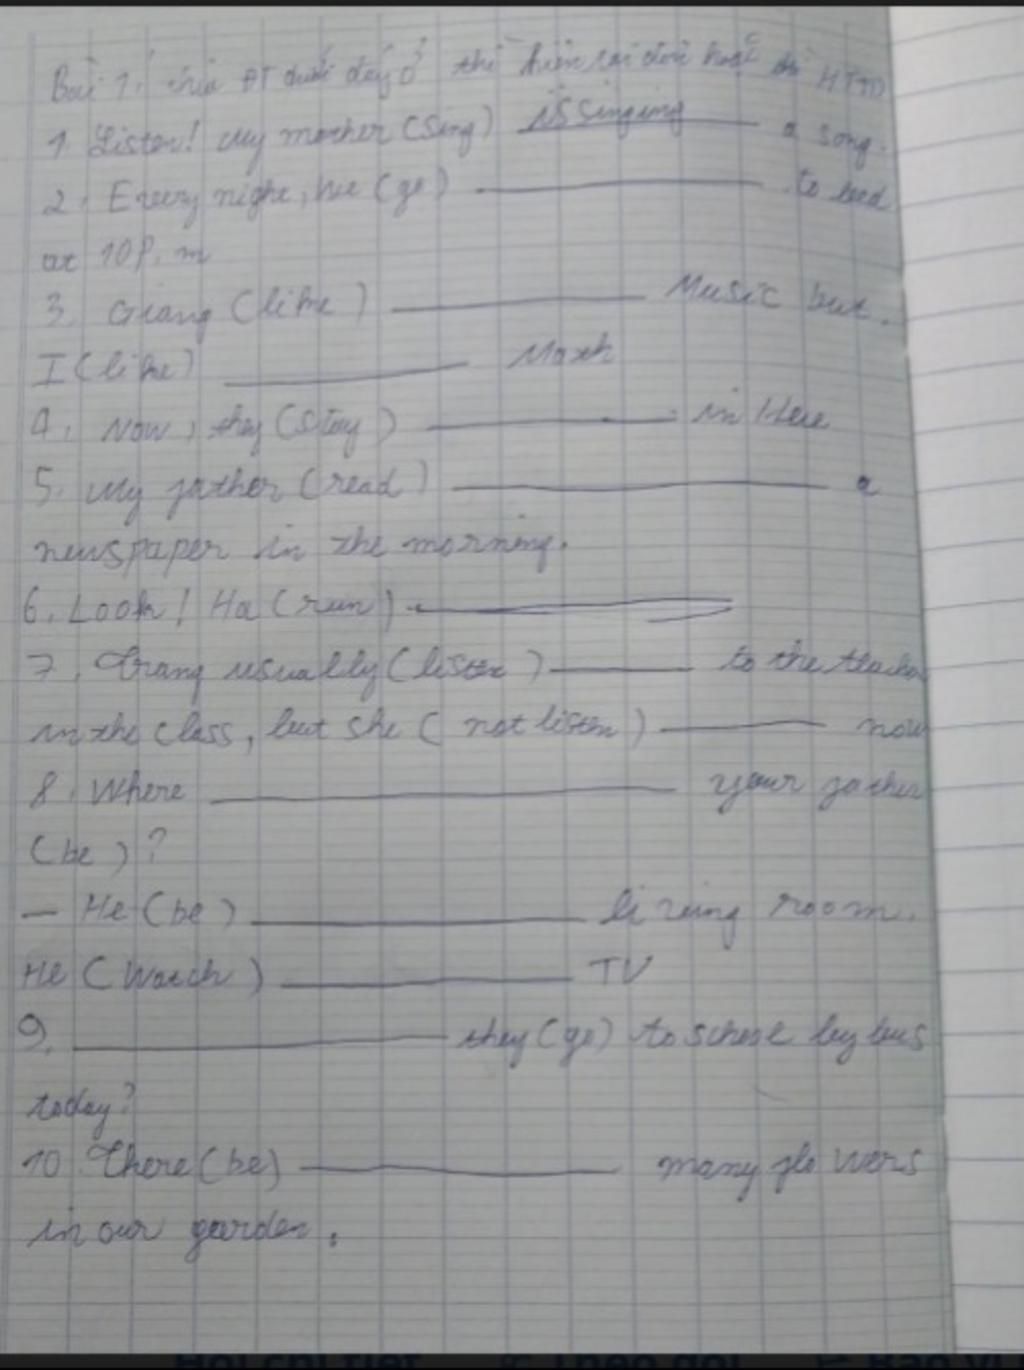 Bài 1: chia ĐT dưới đây ở thì hiện tại đơn hoặc thì HTTD
1. Listen! My mother (sing) is singing a song.
2. Every night, he (go) ____ to bed
at 10 p.m
3. Giang (like) ____ Music but.
I (like) ____ Math
4. Now, they (stay) ____ in Hue
5. My father (read) ____ a
newspaper in the morning.
6. Look! Ha (run) ____
7. Trang usually (listen) ____ to the teacher
in the class, but she (not listen) ____ now
8. Where ____ your father
(be)?
— He (be) ____ living room.
He (watch) ____ TV
9. ____ they (go) to school by bus
today?
10 There (be) ____ many flowers
in our garden.